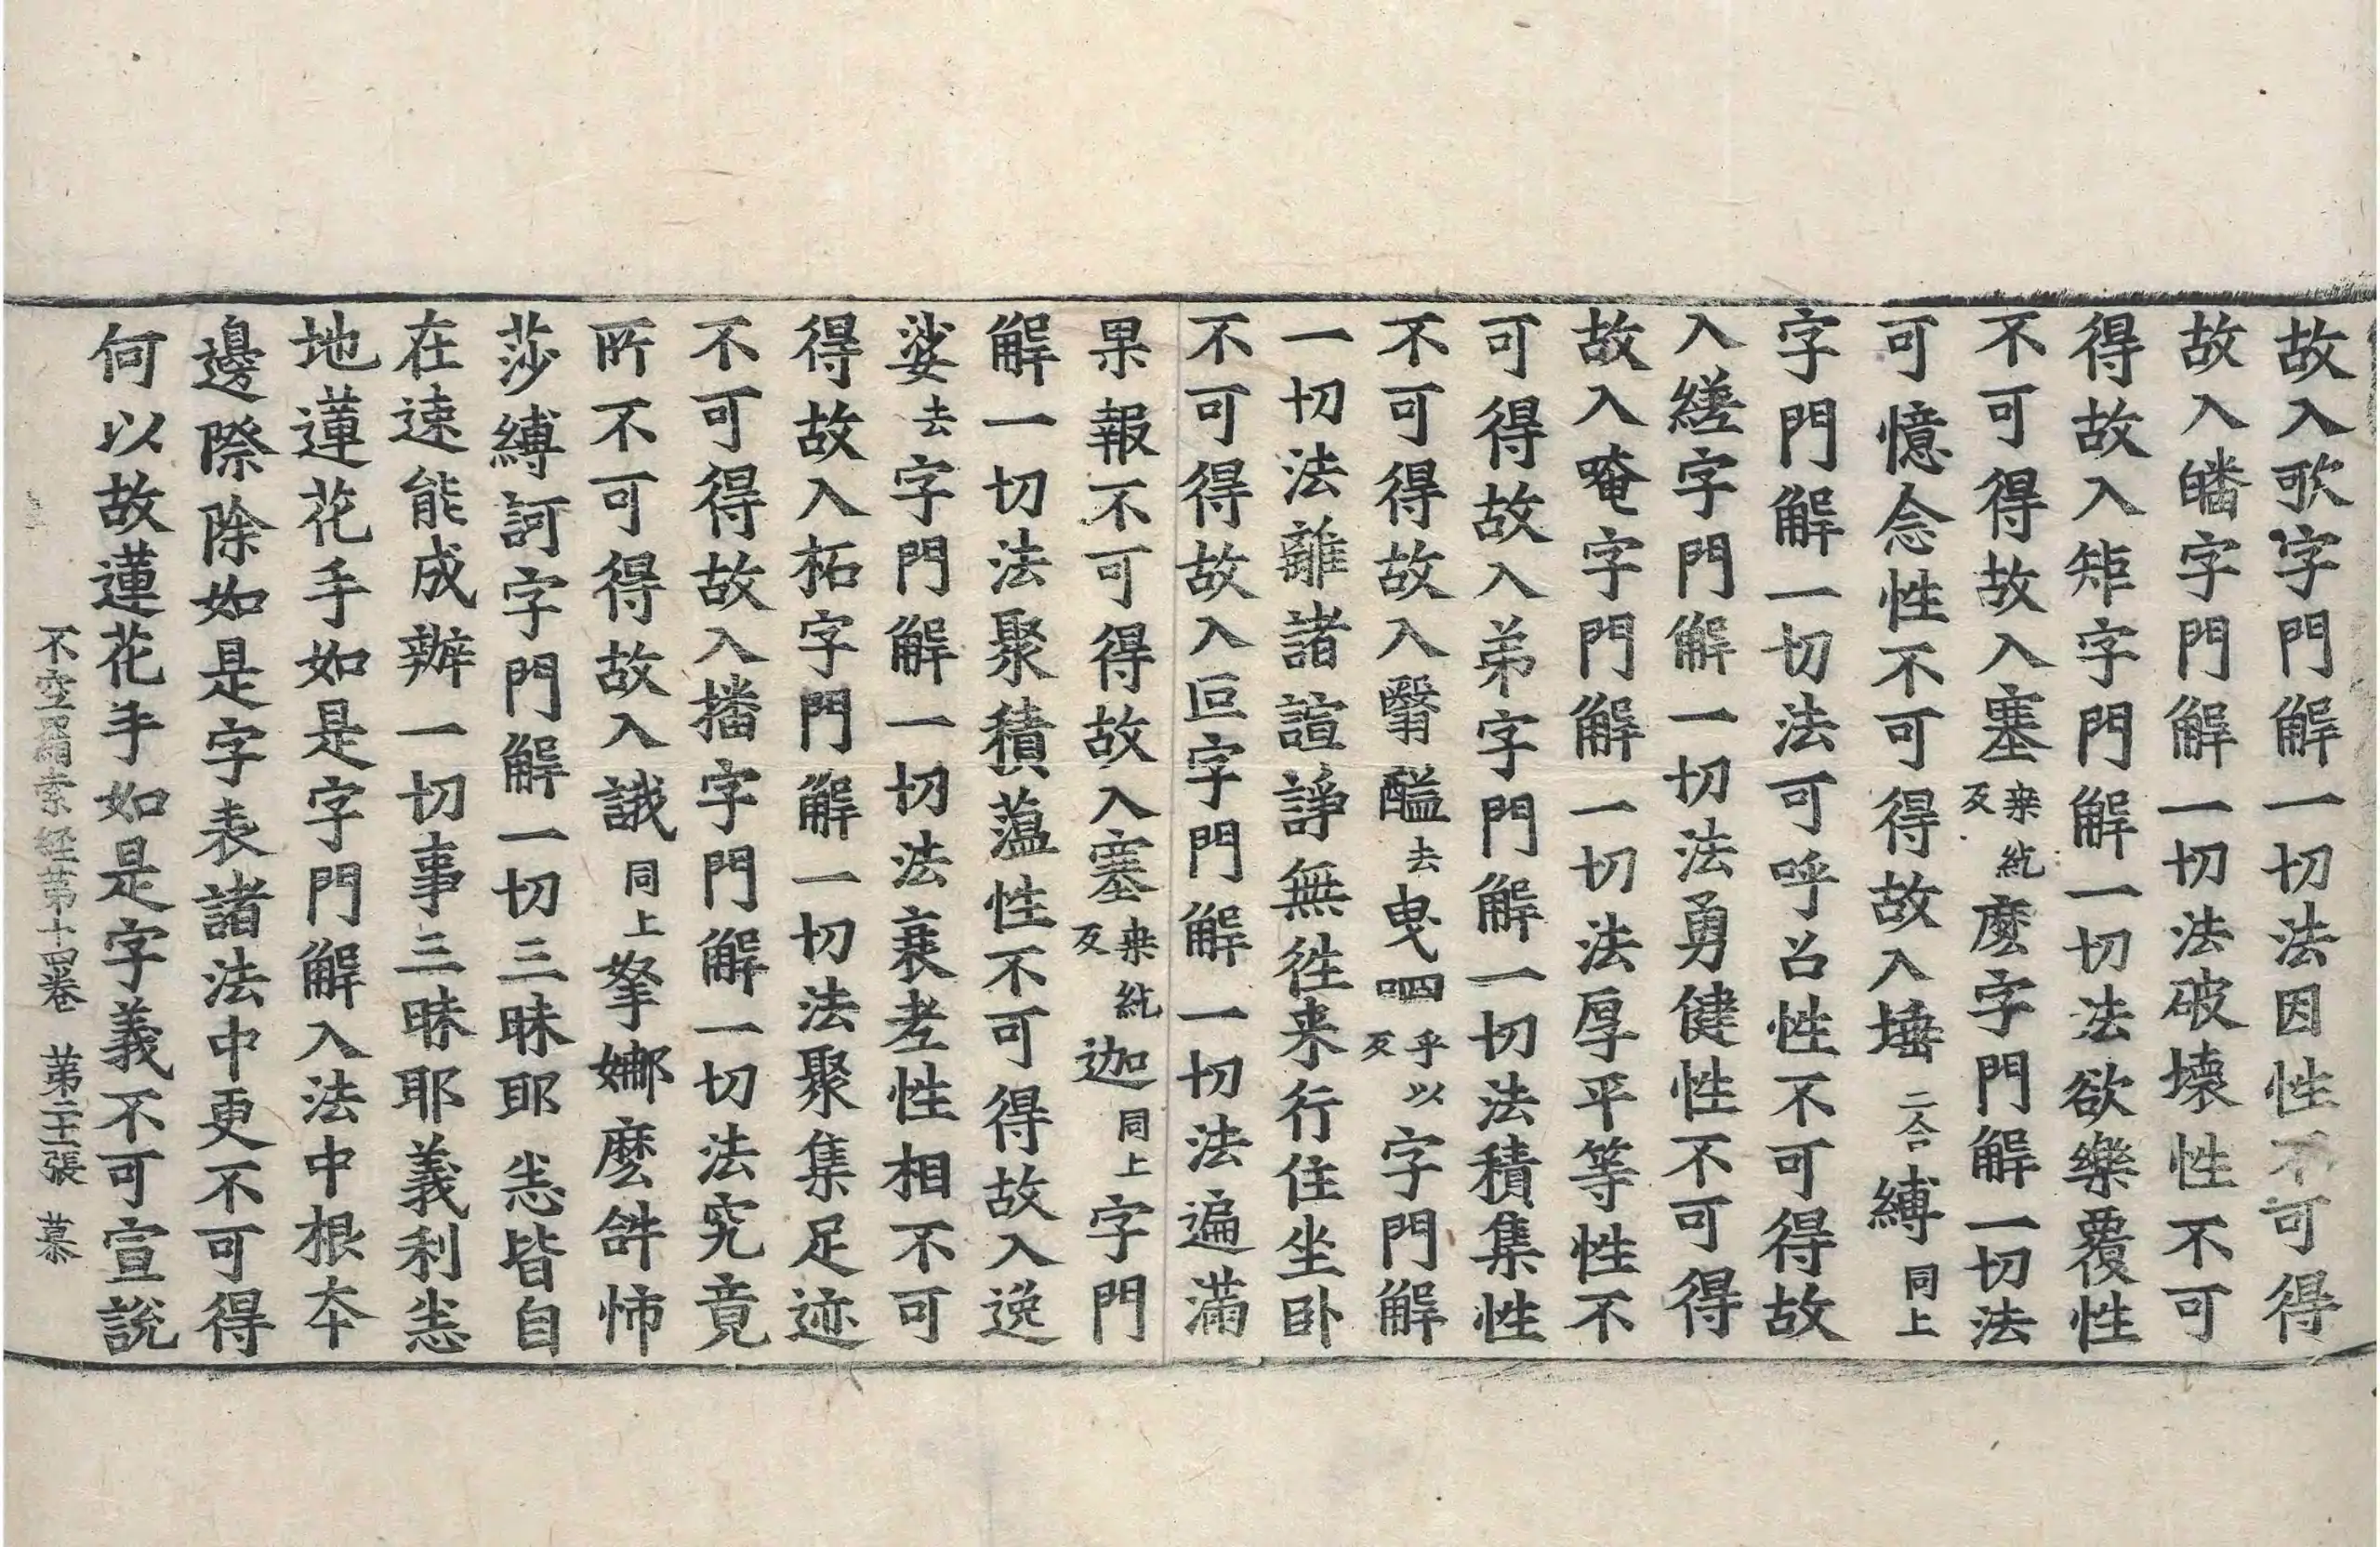 故入歌字門解一切法因性不可得
故入皤字門解一切法破壞性不可
得故入矩字門解一切法欲樂覆性
不可得故入塞桒紇反麼字門解一切法
可憶念性不可得故入㙷二合縛同上
字門解一切法可呼召性不可得故
入縒字門解一切法勇健性不可得
故入唵字門解一切法厚平等性不
可得故入弟字門解一切法積集性
不可得故入翳醯去曳呬乎以反字門解
一切法離諸諠諍無徃来行住坐卧
不可得故入叵字門解一切法遍滿
果報不可得故入塞桒紇反迦同上字門
解一切法聚積薀性不可得故入逸
娑去字門解一切法衰老性相不可
得故入柘字門解一切法聚集足迹
不可得故入播字門解一切法究竟
所不可得故入誐同上拏娜麼䛀怖
莎縛訶字門解一切三昧耶㤪皆自
在速能成辦一切事三昧耶義利㤪
地蓮花手如是字門解入法中根本
邊際除如是字表諸法中更不可得
何以故蓮花手如是字義不可宣說
不空羂索経第十四卷 第二十一張 慕